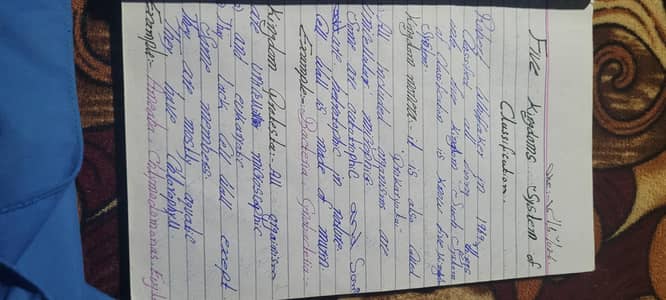 Five Kingdoms System of
Classification.
Robert Whittaker in 1969
Classified all living
into five kingdom Such System
of Classification is five kingdom
System
Kingdom it is also Called
Prokaryotic
All included organisms are
Unicellular
Some are autotrophic Some
are heterotrophic in nature
Cell wall is made of
Example:- Bacteria,
Kingdom Protista:- All organism
are microscopic
and eukaryotic
They lack Cell wall except
Some members
They are mostly aquatic
They have Chlorophyll
Example:- Amoeba, Chlamydomonas, Eugl